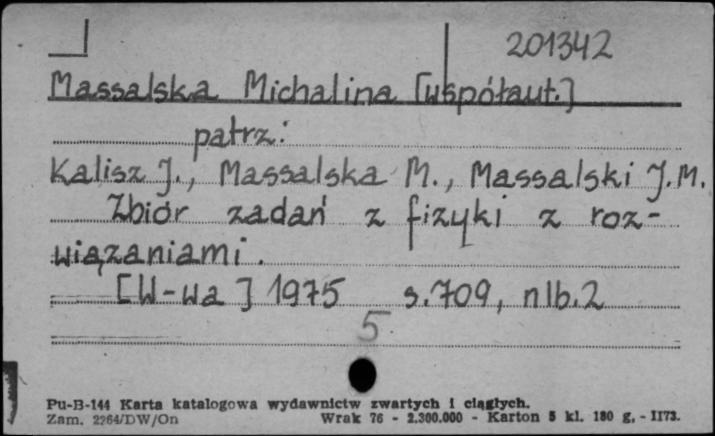 201342
Massalska Michalina [współaut.]
patrz:
Kalisz J., Massalska M., Massalski J.M.
Zbiór zadań z fizyki z roz-
wiązaniami.
[W-wa] 1975 s.709, nlb.2
5
Pu-B-144 Karta katalogowa wydawnictw zwartych i ciągłych.
Zam. 2264/DW/On Wrak 76 - 2.300.000 - Karton 5 kl. 180 g. - II73.